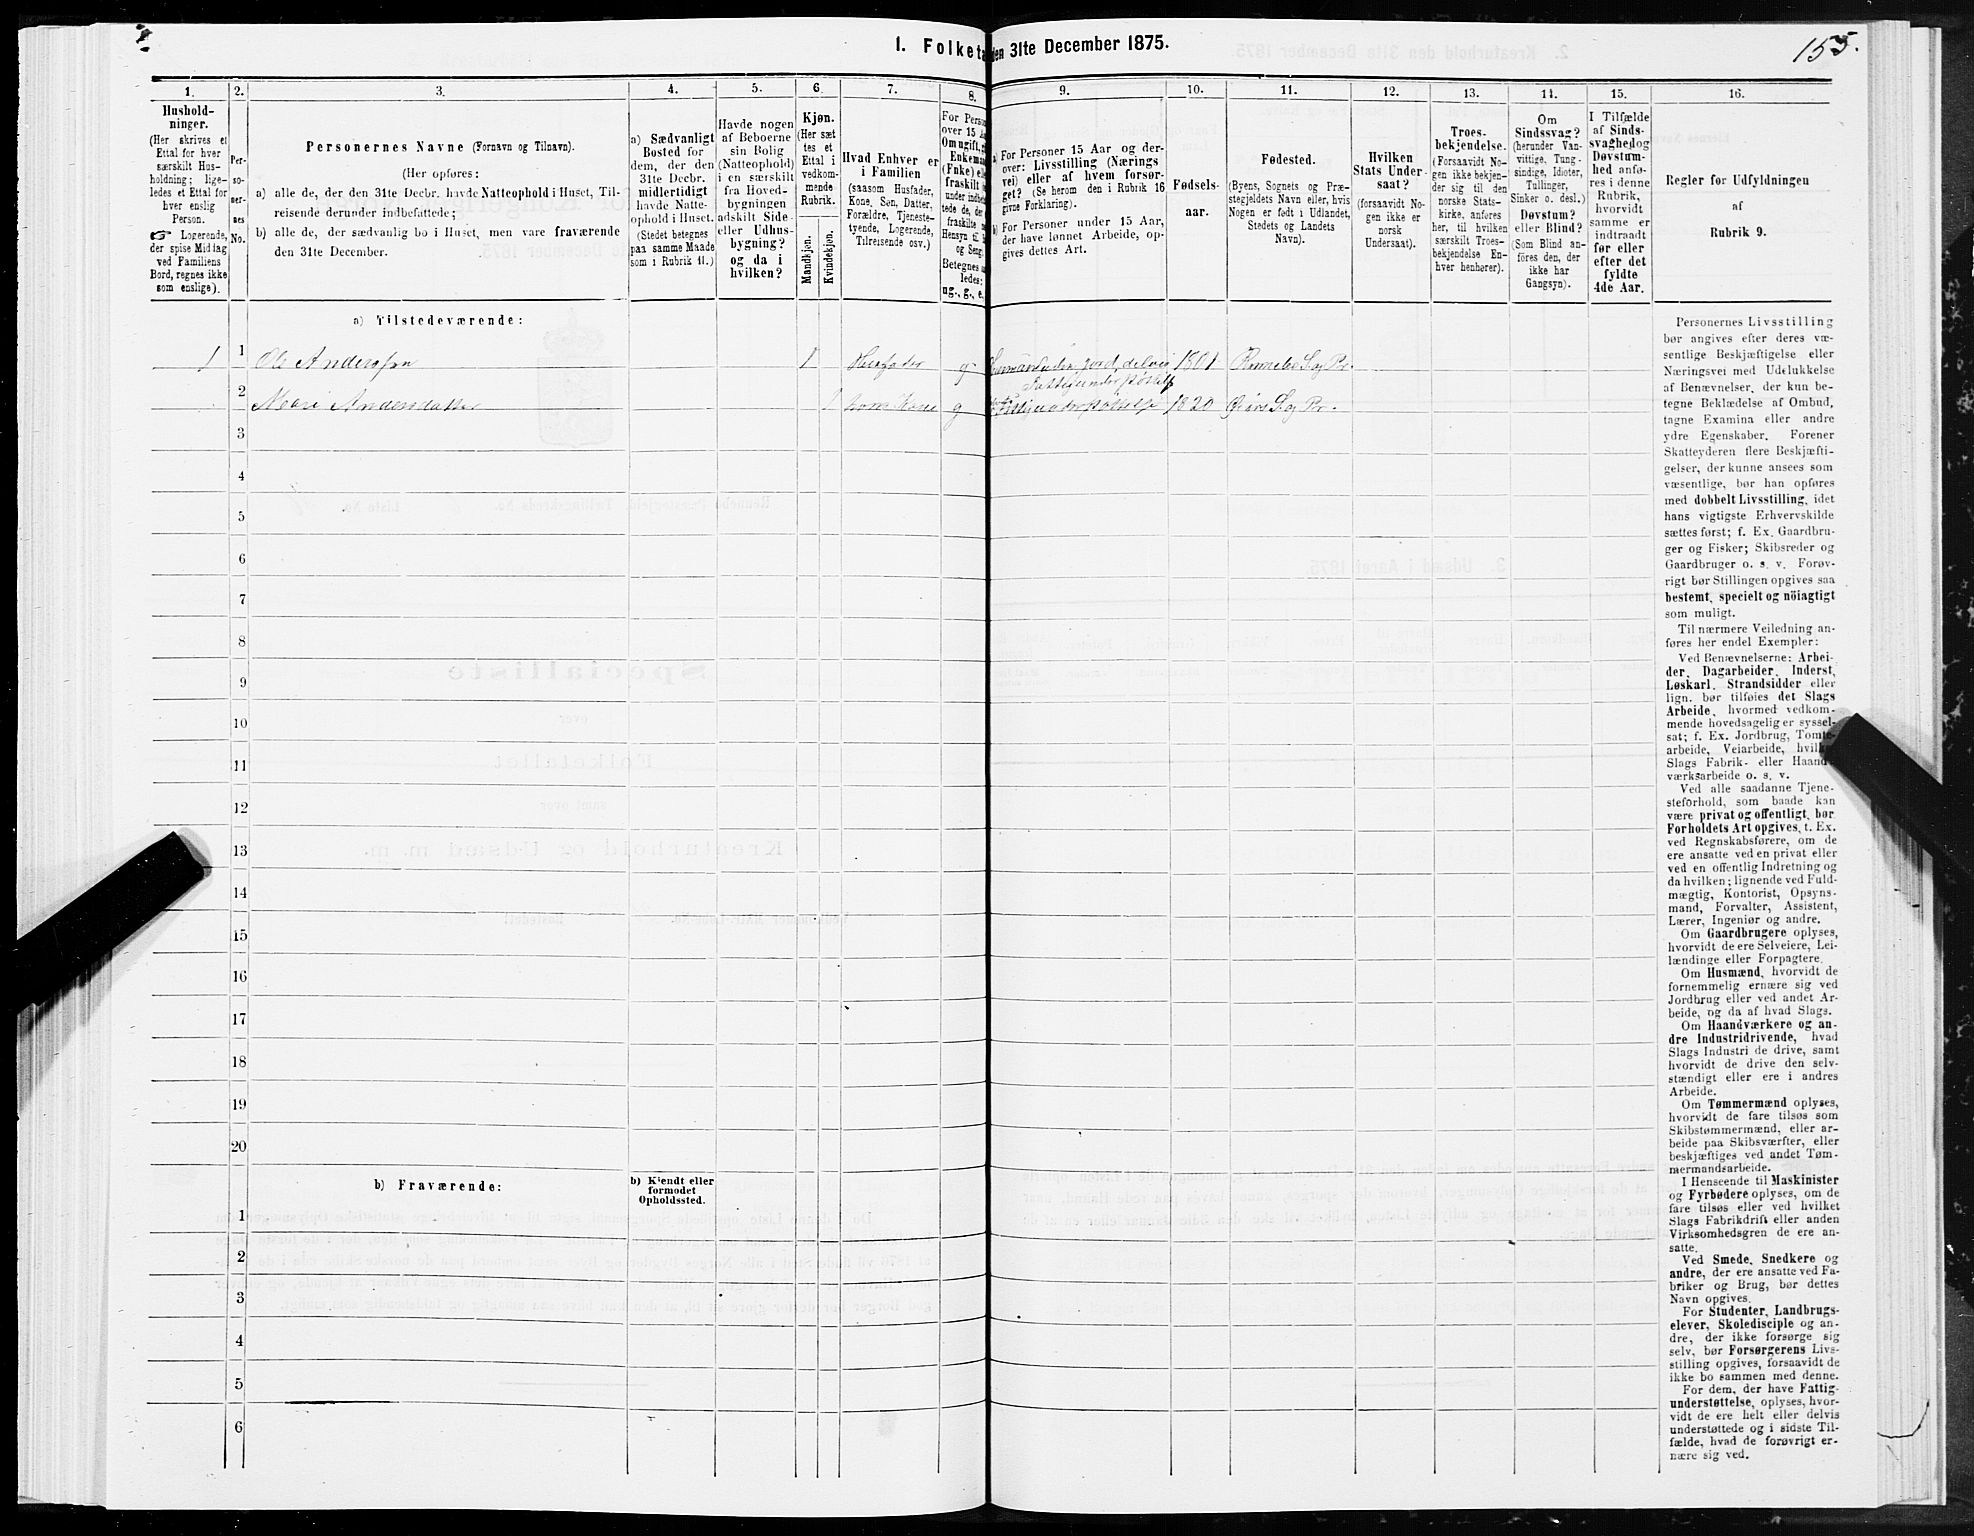 1. Folketa den 31te December 1875.
155.
1.
Hushold-
ninger.
(Her skrives et
Ettal for hver
særskilt Hus-
holdning; lige-
ledes et Ettal for
hver enslig
Person.
☞ Logerende,
der spise Middag
ved Familiens
Bord, regnes ikke
som enslige).
2.
Per-
so-
ner-
nes
No.
3.
Personernes Navne (Fornavn og Tilnavn).
(Her opføres:
a) alle de, der den 31te Decbr. havde Natteophold i Huset, Til-
reisende derunder indbefattede;
b) alle de, der sædvanlig bo i Huset, men vare fraværende
den 31te December.
4.
a) Sædvanligt
Bosted for
dem, der den
31te Decbr.
midlertidigt
havde Natte-
ophold i Huset.
(Stedet betegnes
paa samme Maade
som i Rubrik 11.)
5.
Havde nogen
af Beboerne
sin Bolig
(Natteophold)
i en særskilt
fra Hoved-
bygningen
adskilt Side-
eller Udhus-
bygning?
og da i
hvilken?
6.
Kjøn.
(Her sæt
tes et
Ettal i
vedkom-
mende
Rubrik.
Mandkjøn.
Kvindekjøn.
7.
Hvad Enhver er
i Familien
(saasom Husfader,
Kone, Søn, Datter,
Forældre, Tjeneste-
tyende, Logerende,
Tilreisende osv.)
8.
For Perso
over 15 A
Om ugift, g
Enkema
(Enke) ell
fraskilt
under indbe
tede de, de
fraskilte
Hensyn til
og Seng.
Betegnes
ledes:
ug., g., e.
9.
a) For Personer 15 Aar og der-
over: Livsstilling (Nærings
vei) eller af hvem forsør-
get? (Se herom den i Rubrik 16
givne Forklaring).
b) For Personer under 15 Aar,
der have lønnet Arbeide, op-
gives dettes Art.
10.
Fødsels-
aar.
11.
Fødested.
(Byens, Sognets og Præ-
stegjeldets Navn eller, hvis
Nogen er født i Udlandet,
Stedets og Landets
Navn).
12.
Hvilken
Stats Under-
saat?
(forsaavidt No-
gen ikke er
norsk
Undersaat).
13.
Troes-
bekjendelse.
(Forsaavidt No-
gen ikke bekjen-
der sig til den
norske Stats-
kirke, anføres
her, til hvilken
særskilt Troes-
bekjendelse En-
hver henhører).
14.
Om
Sindssvag?
(herunder Van-
vittige, Tung-
sindige, Idioter,
Tullinger,
Sinker o. desl.)
Døvstum?
eller Blind?
(Som Blind an-
føres den, der
ikke har
Gangsyn).
15.
I Tilfælde
af Sinds-
svaghed og
Døvstum-
hed anfø-
res i denne
Rubrik,
hvorvidt
samme er
indtraadt
før eller
efter det
fyldte
4de Aar.
16.
Regler for Udfyldningen
af
Rubrik 9.
a) Tilstedeværende:
1 1 Ole Anderssen 1 Husfader g Husmand uden Jord, delvis 1801 Rennebo S. og Pr.
Fattigunderstøttelse
2 Mari Andersdatter 1 hans Kone g Fattigunderstøttelse 1820 S. og Pr.
3
4
5
6
7
8
9
10
11
12
13
14
15
16
17
18
19
20
b) Fraværende:
b) Kjendt eller
formodet
Opholdssted.
1
2
3
4
5
6
Personernes Livsstilling
bør angives efter deres væ-
sentlige Beskjæftigelse eller
Næringsvei med Udelukkelse
af Benævnelser, der kun be-
tegne Beklædelse af Ombud,
tagne Examina eller andre
ydre Egenskaber. Forener
Skatteyderen flere Beskjæfti-
gelser, der kunne ansees som
væsentlige, bør han opføres
med dobbelt Livsstilling, idet
hans vigtigste Erhvervskilde
sættes først; f. Ex. Gaardbru-
ger og Fisker; Skibsreder og
Gaardbruger o. s. v. Forøv-
rigt bør Stillingen opgives saa
bestemt, specielt og nöiagtigt
som muligt.
Til nærmere Veiledning an-
føres her endel Exempler:
Ved Benævnelserne: Arbei-
der, Dagarbeider, Inderst,
Løskarl, Strandsidder eller
lign. bør tilføies det Slags
Arbeide, hvormed vedkom-
mende hovedsagelig er syssel-
sat; f. Ex. Jordbrug, Tomte-
arbeide, Veiarbeide, hvilket
Slags Fabrik- eller Haand-
værksarbeide o. s. v.
Ved alle saadanne Tjene-
steforhold, som baade kan
være privat og offentligt, bør
Forholdets Art opgives, t. Ex.
ved Regnskabsførere, om de
ere ansatte ved en privat eller
ved en offentlig Indretning og
da hvilken; lignende ved Fuld-
mægtig, Kontorist, Opsyns-
mand, Forvalter, Assistent,
Lærer, Ingeniør og andre.
Om Gaardbrugere oplyses,
hvorvidt de ere Selveiere, Lei-
lændinge eller Forpagtere.
Om Husmænd, hvorvidt de
fornemmelig ernære sig ved
Jordbrug eller ved andet Ar-
beide, og da af hvad Slags.
Om Haandværkere og an-
dre Industridrivende, hvad
Slags Industri de drive, samt
hvorvidt de drive den selv-
stændigt eller ere i andres
Arbeide.
Om Tømmermænd oplyses,
hvorvidt de fare tilsøs som
Skibstømmermænd, eller ar-
beide paa Skibsværfter, eller
beskjæftiges ved andet Tøm-
mermandsarbeide.
I Henseende til Maskinister
og Fyrbødere oplyses, om de
fare tilsøs eller ved hvilket
Slags Fabrikdrift eller anden
Virksomhedsgren de ere an-
satte.
Ved Smede, Snedkere og
andre, der ere ansatte ved Fa-
briker og Brug, bør dettes
Navn opgives.
For Studenter, Landbrugs-
elever, Skoledisciple og an-
dre, der ikke forsørge sig
selv, bør Forsørgerens Livs-
stilling opgives, forsaavidt de
ikke bo sammen med denne.
For dem, der have Fattig-
understøttelse, oplyses, hvor-
vidt de ere helt eller delvis
understøttede og i sidste Til-
fælde, hvad de forøvrigt er-
nære sig ved.